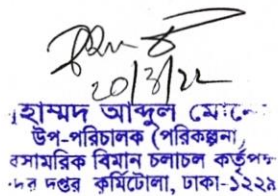 20/3/22
হাম্মদ আব্দুল
উপ-পরিচালক (পরিকল্পনা
বসামরিক বিমান চলাচল কর্তৃপ
দর দপ্তর কুর্মিটোলা, ঢাকা-১২২